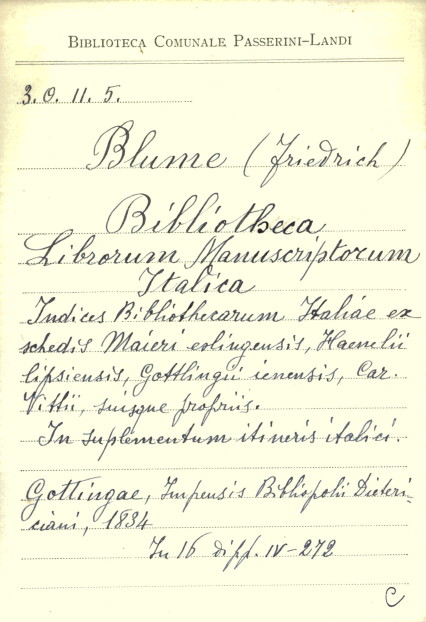 BIBLIOTECA COMUNALE PASSERINI-LANDI
3.O. 11. 5.
Blume (Friedrich)
Bibliotheca
Librorum Manuscriptorum
Italica
Indices Bibliothecarum Italiae ex
schedis Maieri eslingensis, Haenelii
lipsiensis, Gottlingii ienensis, Car.
Vittii, suisque propriis.
In suplementum itineris italici.
Gottingae, Impensis Bibliopolii Dieteri-
ciani, 1834
In 16 di pp. IV-272
C